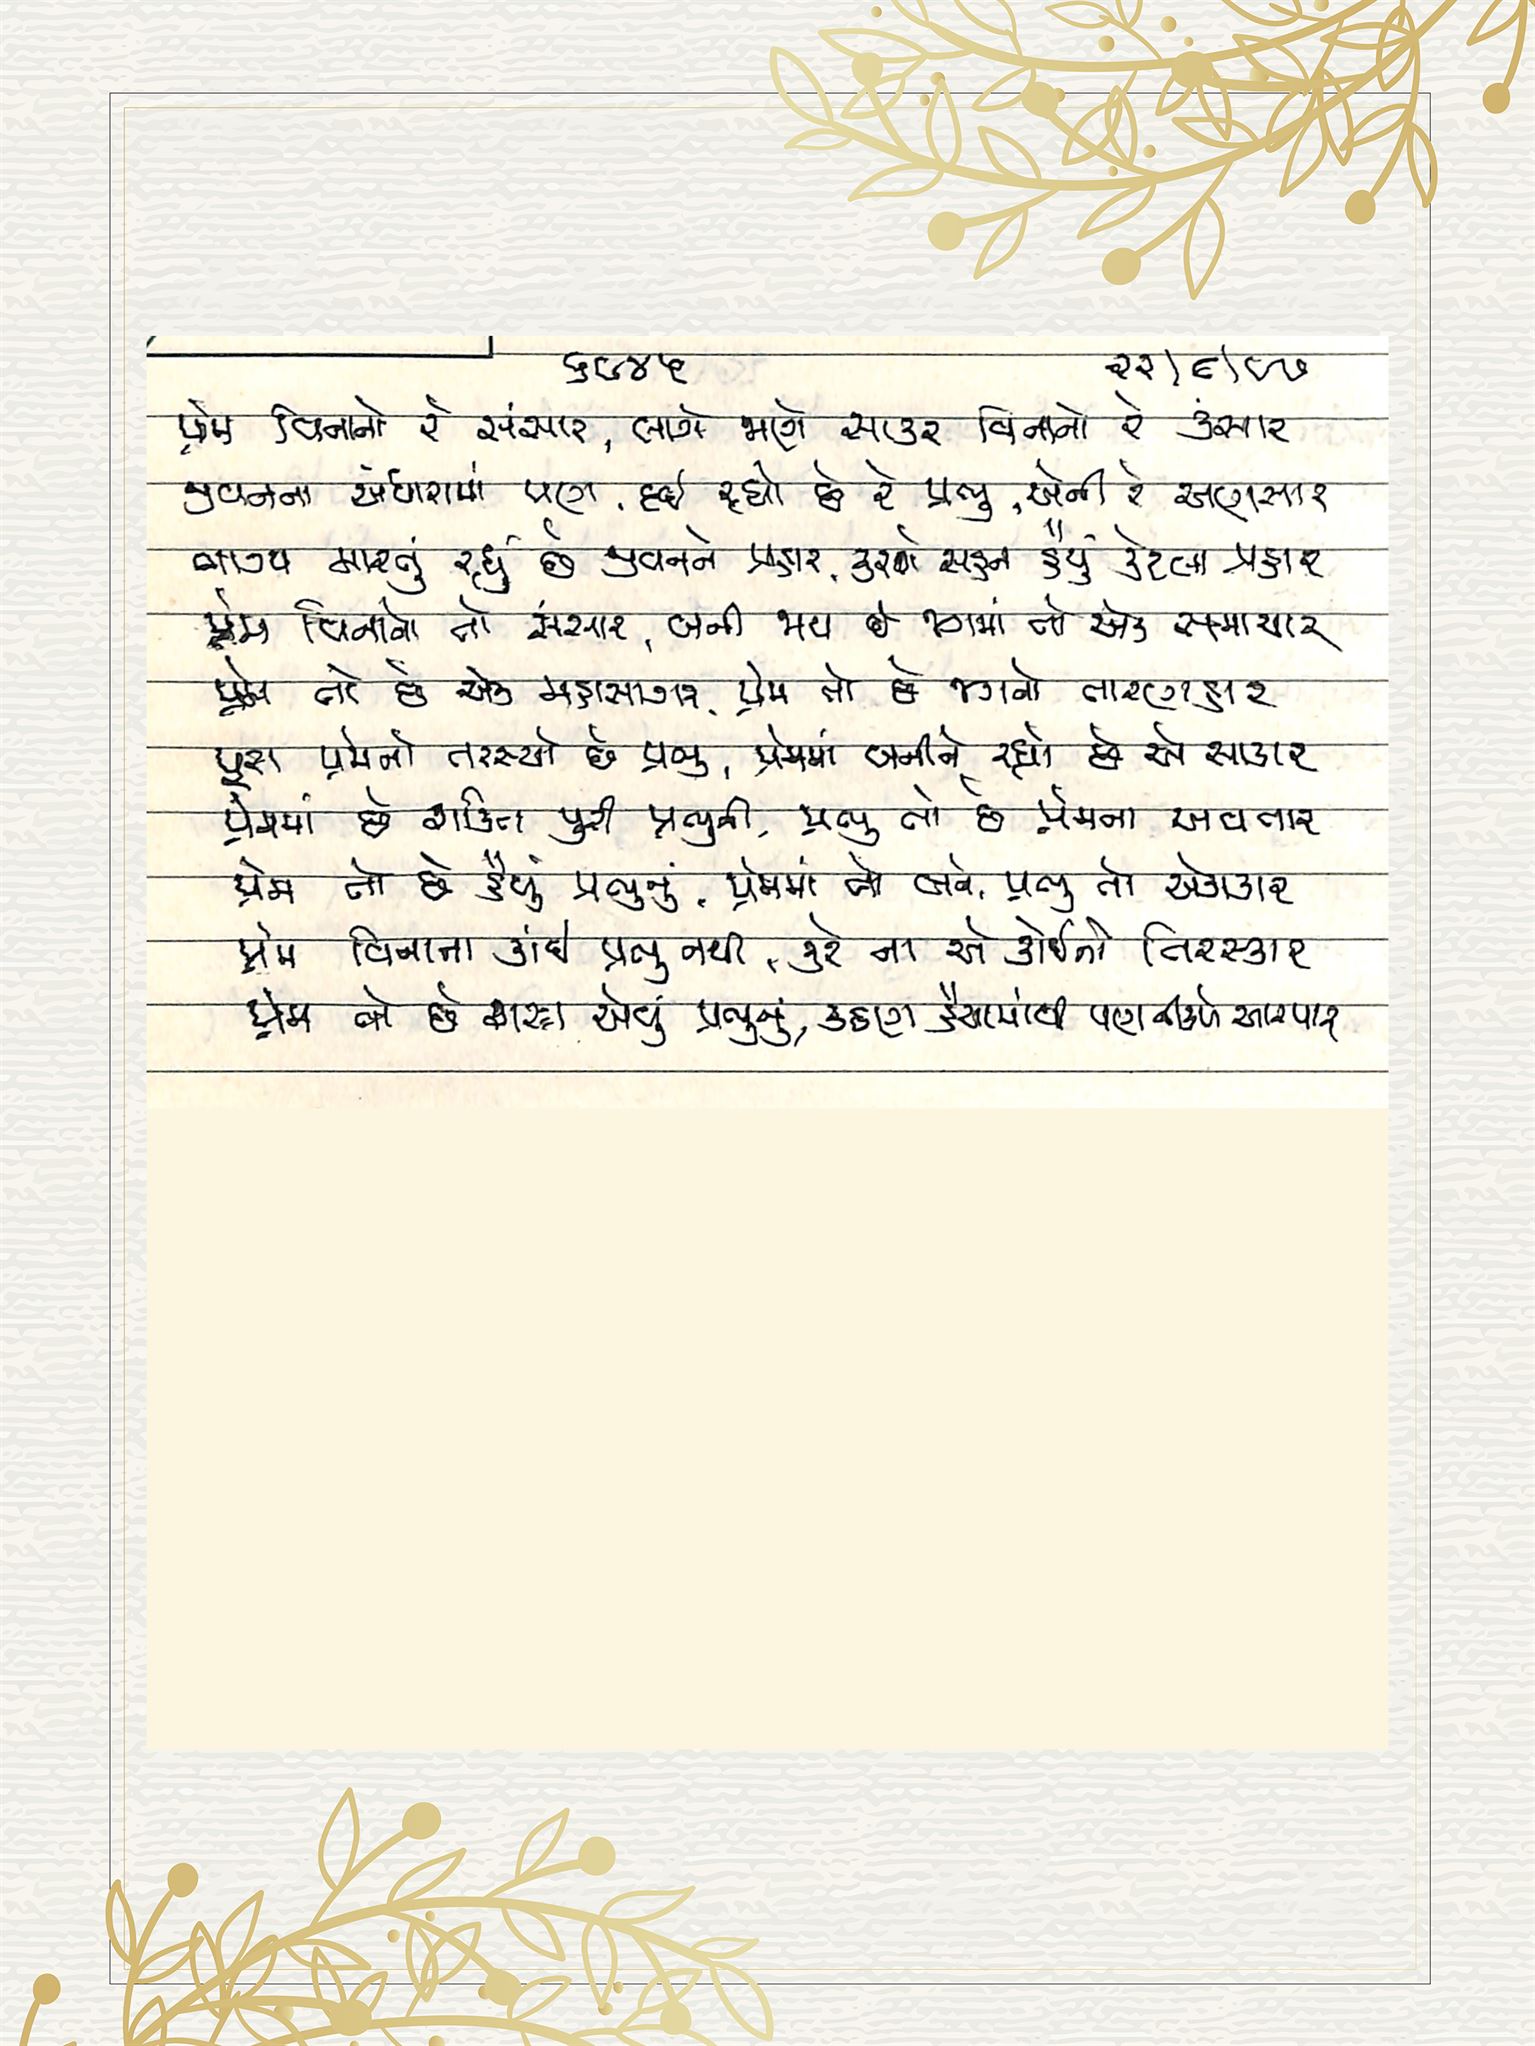 ૬૯૪૫ ૨૨/૯/૯૭
પ્રેમ વિનાનો રે સંસાર, લાગે જાણે સાકર વિનાનો રે કંસાર
જીવનના અંધારામાં પણ, દઈ રહ્યો છે રે પ્રભુ, એની રે અણસાર
ભાગ્ય મારતું રહ્યું છે જીવનને પ્રહાર, કરશે સહન હૈયું કેટલા પ્રહાર
પ્રેમ વિનાનો તો સંસાર, બની જાય છે જગમાં તો એક સમાચાર
પ્રેમ તો છે એક મહાસાગર, પ્રેમ તો છે જગનો તારણહાર
પૂરા પ્રેમનો તરસ્યો છે પ્રભુ, પ્રેમમાં બનીને રહ્યો છે એ સાકાર
પ્રેમમાં છે શક્તિ પુરી પ્રભુની, પ્રભુ તો છે પ્રેમના અવતાર
પ્રેમ તો છે હૈયું પ્રભુનું, પ્રેમમાં તો બને, પ્રભુ તો એકાકાર
પ્રેમ વિનાના કાંઈ પ્રભુ નથી, કરે ના એ કોઈનો તિરસ્કાર
પ્રેમ તો છે શસ્ત્ર એવું પ્રભુનું, કઠણ હૈયામાંથી પણ નીકળે આરપાર